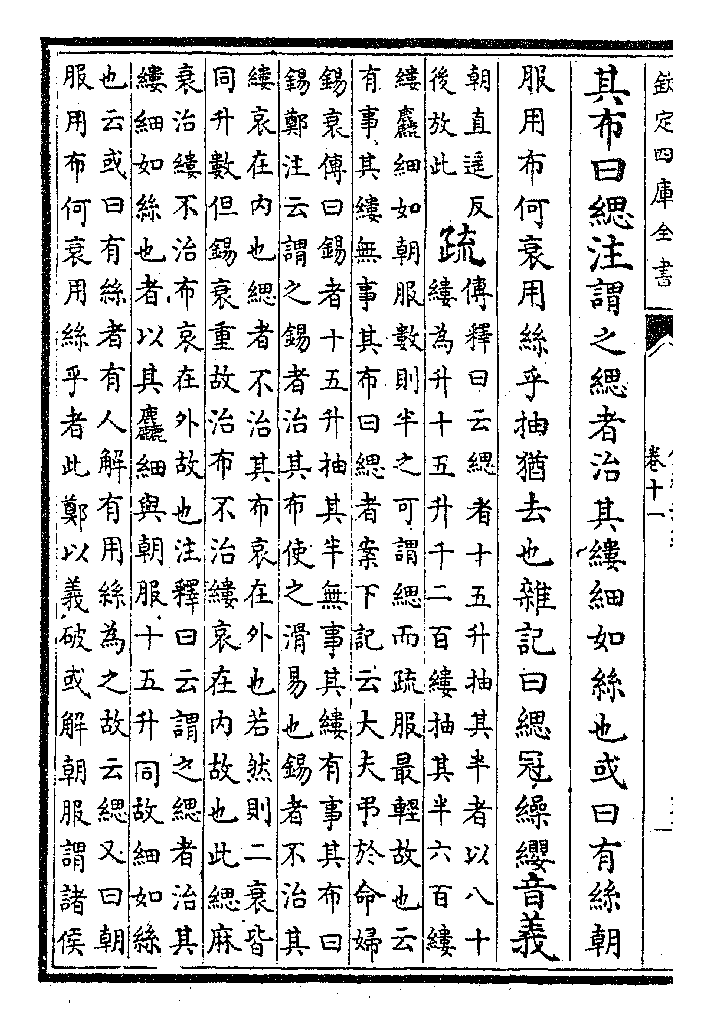 欽定四庫全書
卷十一
其布曰緦注謂之緦者治其縷細如絲也或曰有絲朝
服用布何衰用絲乎抽猶去也雜記曰緦冠繰纓音義
朝直遥反
後放此
疏
傳釋曰云緦者十五升抽其半者以八十
縷為升十五升千二百縷抽其半六百縷
縷麤細如朝服數則半之可謂緦而疏服最輕故也云
有事其縷無事其布曰緦者案下記云大夫弔於命婦
錫衰傳曰錫者十五升抽其半無事其縷有事其布曰
錫鄭注云謂之錫者治其布使之滑易也錫者不治其
縷哀在内也緦者不治其布哀在外也若然則二衰皆
同升數但錫衰重故治布不治縷哀在内故也此緦麻
衰治縷不治布哀在外故也注釋曰云謂之緦者治其
縷細如絲也者以其麤細與朝服十五升同故細如絲
也云或曰有絲者有人解有用絲為之故云緦又曰朝
服用布何衰用絲乎者此鄭以義破或解朝服謂諸侯